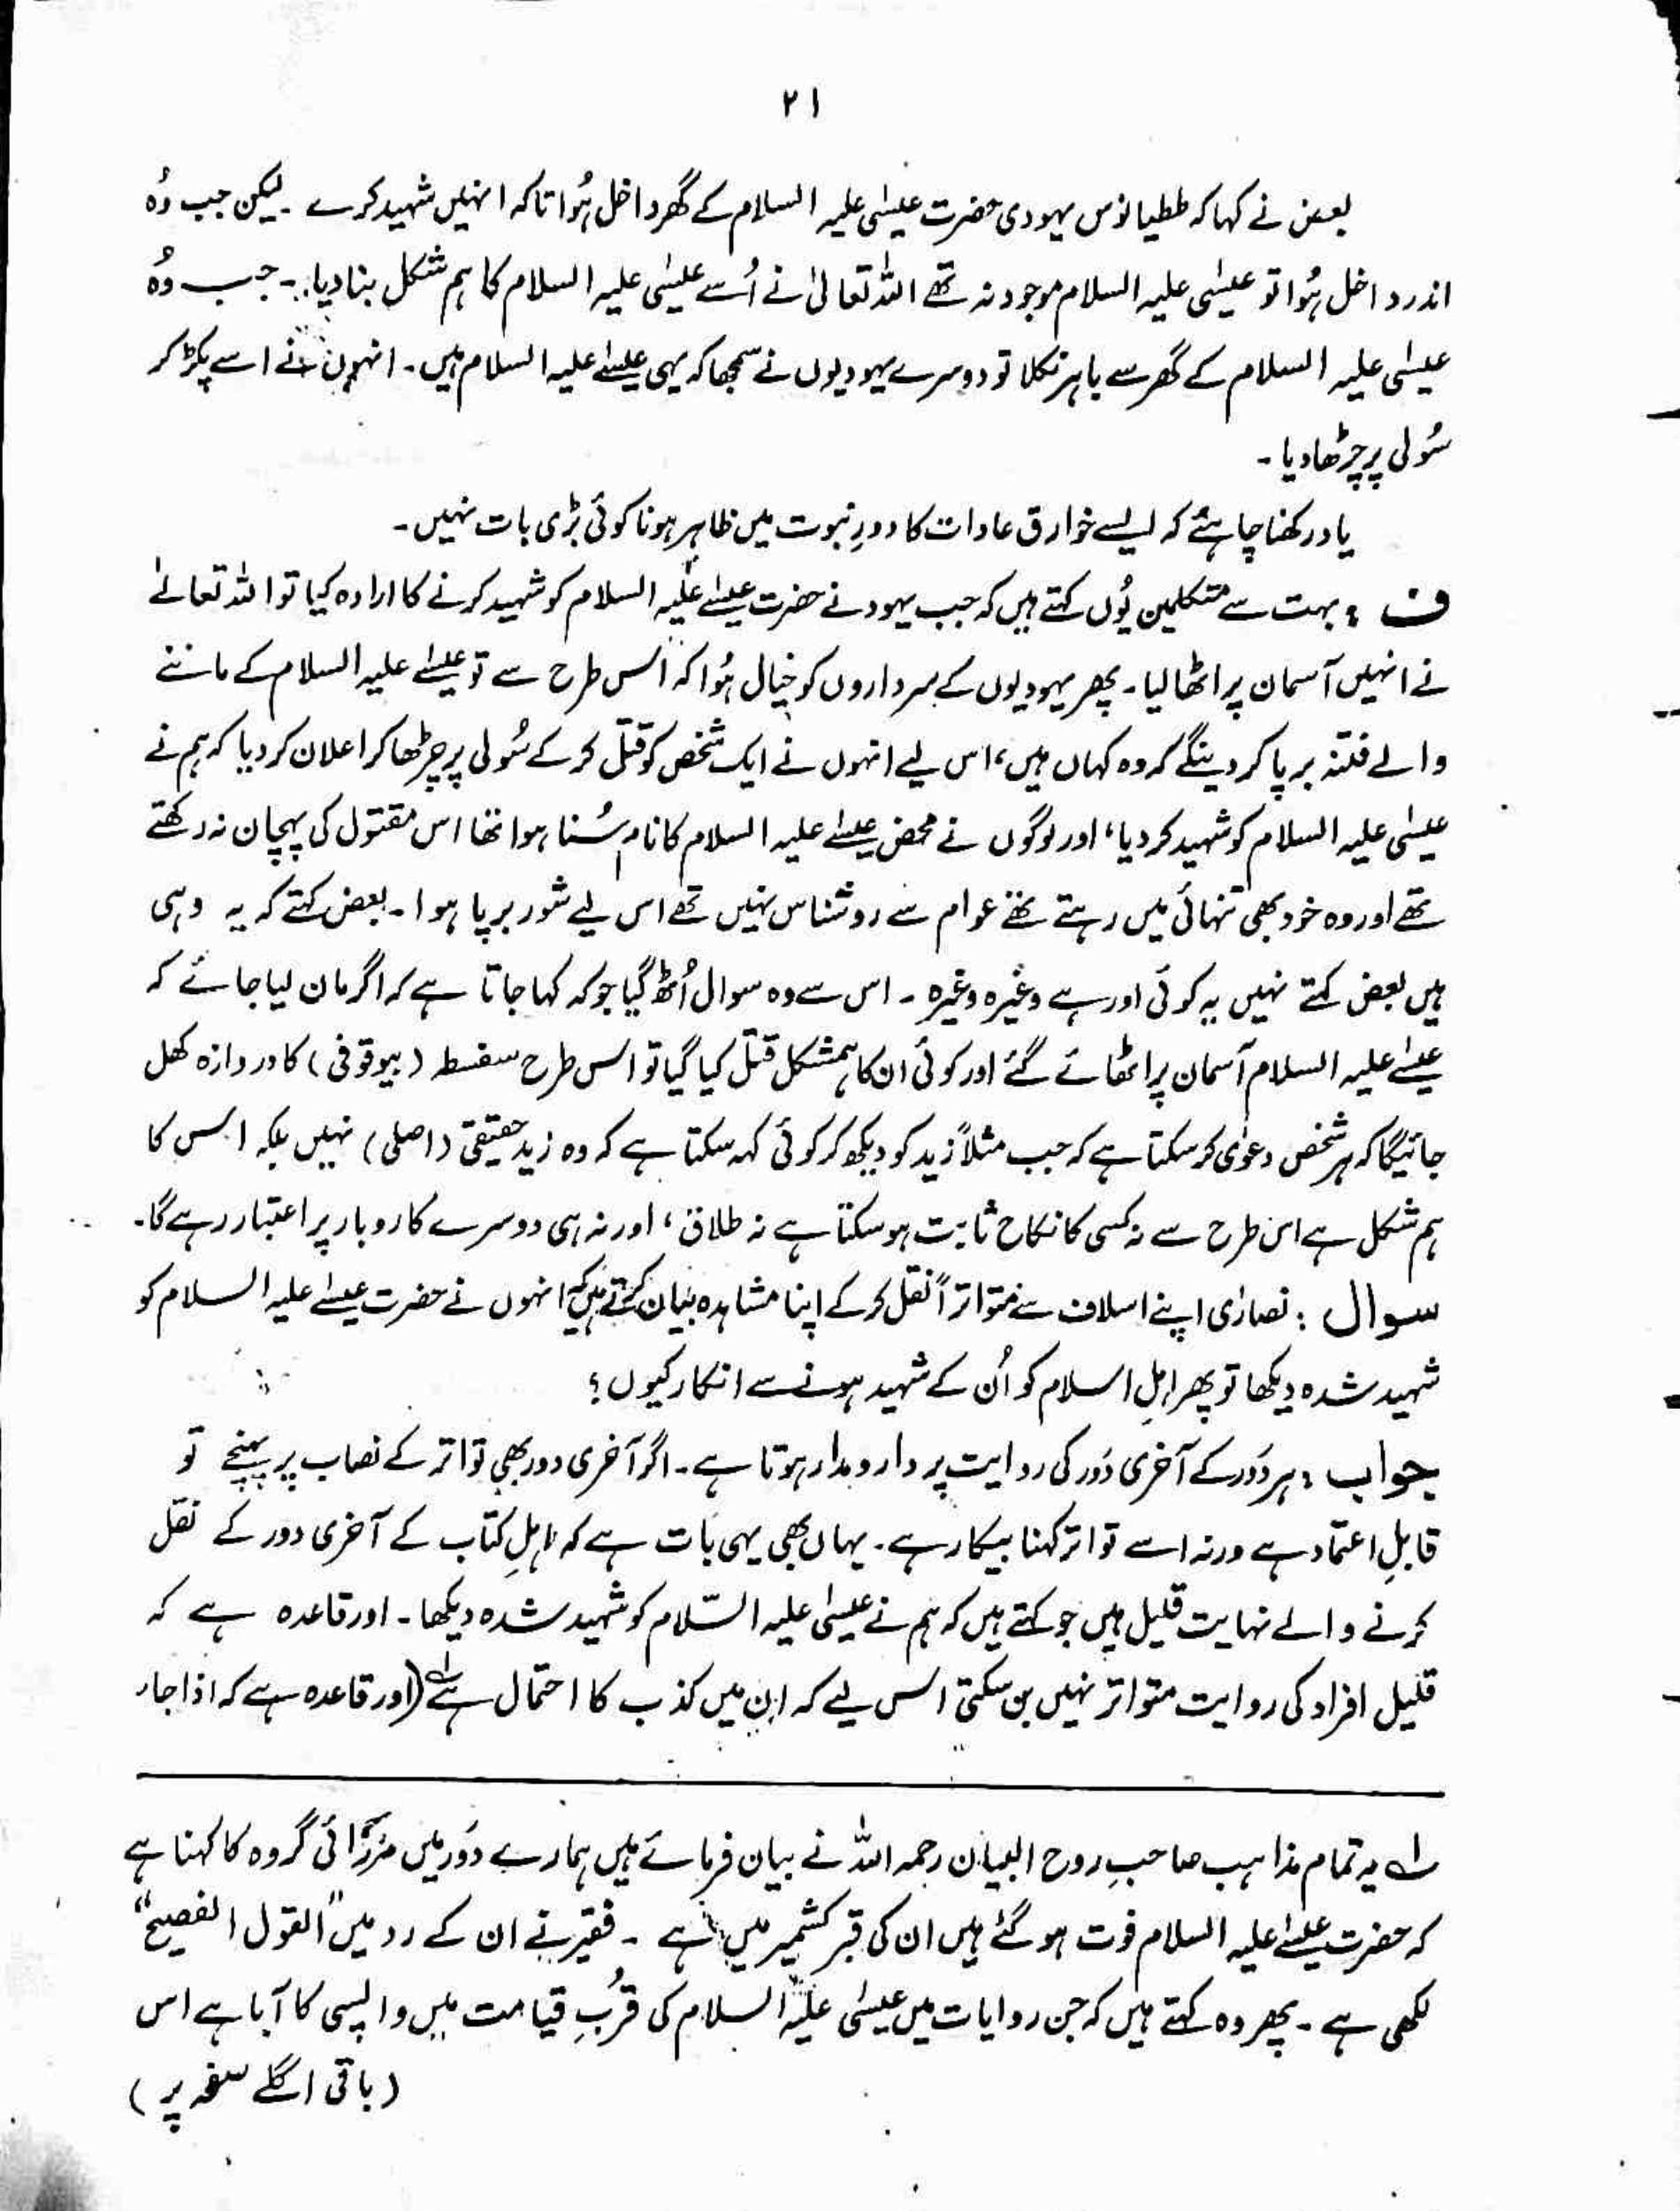 ۲۱
بعض نے کہا کہ ططیانوس یہودی حضرت عیسٰی علیہ السلام کے گھر داخل ہُوا تاکہ انہیں شہید کرے ۔ لیکن جب وُہ
اندر داخل ہُوا تو عیسٰی علیہ السلام موجود نہ تھے اللہ تعالیٰ نے اُسے عیسٰی علیہ السلام کا ہم شکل بنا دیا۔ جب وُہ
عیسٰی علیہ السلام کے گھر سے باہر نکلا تو دوسرے یہودیوں نے سمجھا کہ یہی عیسٰے علیہ السلام ہیں ۔ انہوں نے اسے پکڑ کر
سُولی پر چڑھا دیا ۔
یاد رکھنا چاہئے کہ ایسے خوارق عادات کا دورِ نبوت میں ظاہر ہونا کوئی بڑی بات نہیں ۔
ف : بہت سے متکلمین یُوں کہتے ہیں کہ جب یہود نے حضرت عیسٰے علیہ السلام کو شہید کرنے کا ارادہ کیا تو اللہ تعالےٰ
نے انہیں آسمان پر اٹھا لیا ۔ پھر یہودیوں کے سرداروں کو خیال ہُوا کہ اس طرح سے تو عیسٰے علیہ السلام کے ماننے
والے فتنہ برپا کر دینگے کہ وہ کہاں ہیں، اس لیے انہوں نے ایک شخص کو قتل کر کے سُولی پر چڑھا کر اعلان کر دیا کہ ہم نے
عیسٰی علیہ السلام کو شہید کر دیا، اور لوگوں نے محض عیسٰے علیہ السلام کا نام سُنا ہوا تھا اس مقتول کی پہچان نہ رکھتے
تھے اور وہ خود بھی تنہائی میں رہتے تھے عوام سے روشناس نہیں تھے اس لیے شور برپا ہوا ۔ بعض کہتے کہ یہ وہی
ہیں بعض کہتے نہیں یہ کوئی اور ہے وغیرہ وغیرہ ۔ اس سے وہ سوال اُٹھ گیا جو کہ کہا جاتا ہے کہ اگر مان لیا جائے کہ
عیسٰے علیہ السلام آسمان پر اٹھائے گئے اور کوئی ان کا ہمشکل قتل کیا گیا تو اس طرح سفسطہ (بیوقوفی) کا دروازہ کھل
جائیگا کہ ہر شخص دعوٰی کر سکتا ہے کہ جب مثلاً زید کو دیکھ کر کوئی کہہ سکتا ہے کہ وہ زید حقیقی (اصلی) نہیں بلکہ اس کا
ہم شکل ہے اس طرح سے نہ کسی کا نکاح ثابت ہو سکتا ہے نہ طلاق، اور نہ ہی دوسرے کاروبار پر اعتبار رہے گا۔
سوال : نصارٰی اپنے اسلاف سے متواتراً نقل کر کے اپنا مشاہدہ بیان کرتے ہیں کہ انہوں نے حضرت عیسٰے علیہ السلام کو
شہید شدہ دیکھا تو پھر اہلِ اسلام کو اُن کے شہید ہونے سے انکار کیوں؟
جواب : ہر دَور کے آخری دَور کی روایت پر دارومدار ہوتا ہے ۔ اگر آخری دور بھی تواتر کے نصاب پر پہنچے تو
قابلِ اعتماد ہے ورنہ اسے تواتر کہنا بیکار ہے ۔ یہاں بھی یہی بات ہے کہ اہلِ کتاب کے آخری دور کے نقل
کرنے والے نہایت قلیل ہیں جو کہتے ہیں کہ ہم نے عیسٰی علیہ السّلام کو شہید شدہ دیکھا ۔ اور قاعدہ ہے کہ
قلیل افراد کی روایت متواتر نہیں بن سکتی اس لیے کہ ان میں کذب کا احتمال ہے لہ (اور قاعدہ ہے کہ اذا جاء
لہ یہ تمام مذاہب صاحبِ روح البیان رحمہ اللہ نے بیان فرمائے ہیں ہمارے دَور میں مرزائی گروہ کا کہنا ہے
کہ حضرت عیسٰے علیہ السلام فوت ہو گئے ہیں ان کی قبر کشمیر میں ہے ۔ فقیر نے ان کے رد میں "القول الفصیح"
لکھی ہے ۔ پھر وہ کہتے ہیں کہ جن روایات میں عیسٰی علیہ السلام کی قُربِ قیامت میں واپسی کا آیا ہے اس
(باقی اگلے صفحہ پر)